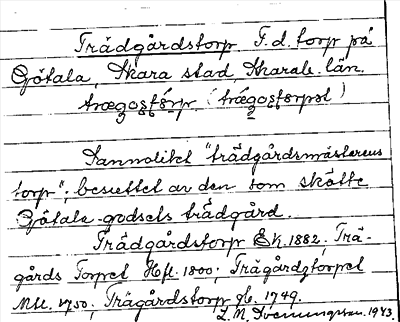 Trädgårdstorp. F.d. torp på
Götala, Skara stad, Skarab. län.
trægostǫrp (trægostorpet)
Sannolikt "trädgårdsmästarens
torp"; besuttet av den som skötte
Götala-godsets trädgård.
Trädgårdstorp Ek. 1882; Trä-
gårds Torpet Hfl. 1800; Trägårdztorpet
Mtl. 1750; Trägårdstorp gb. 1749.
L. M. Svenungsson. 1943.